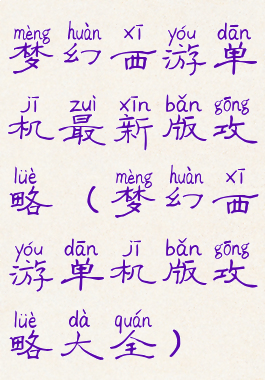 mèng huàn xī yóu dān
梦幻西游单
jī zuì xīn bǎn gōng
机最新版攻
lüè mèng huàn xī
略（梦幻西
yóu dān jī bǎn gōng
游单机版攻
lüè dà quán
略大全）